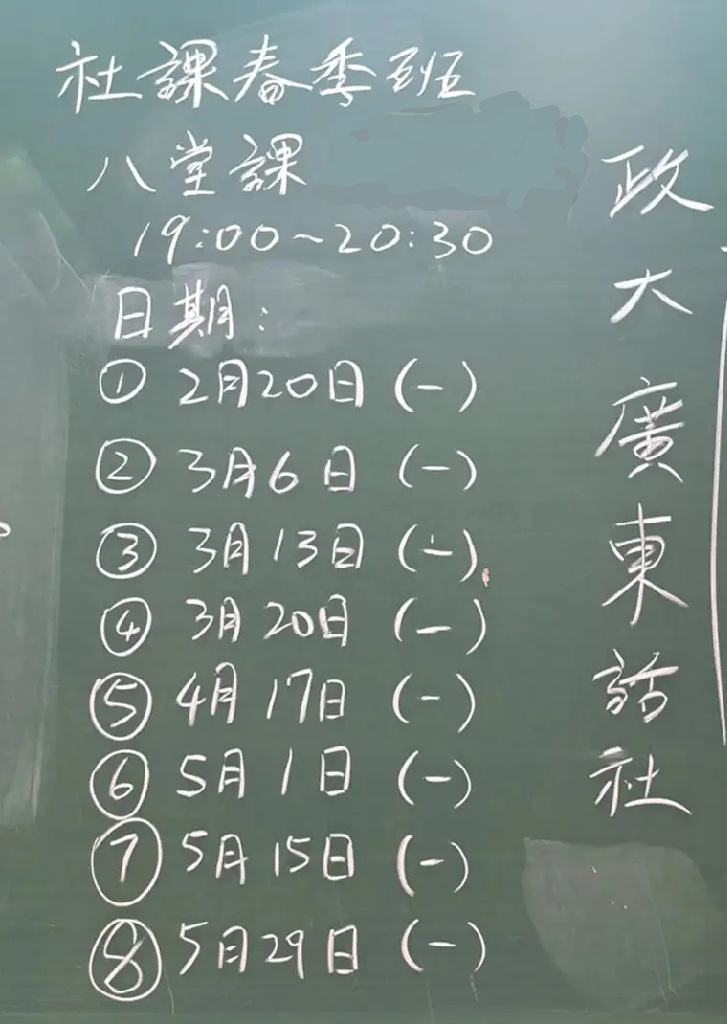 社課春季班
八堂課
19:00~20:30
日期:
① 2月20日(一)
② 3月6日(一)
③ 3月13日(一)
④ 3月20日(一)
⑤ 4月17日(一)
⑥ 5月1日(一)
⑦ 5月15日(一)
⑧ 5月29日(一)
政大廣東話社